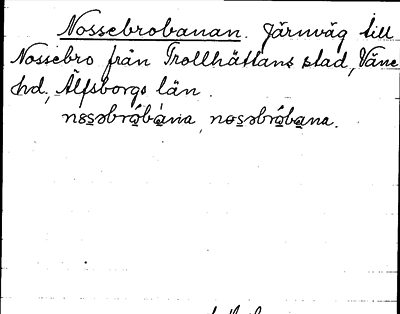 Nossebrobanan. Järnväg till
Nossebro från Trollhättans stad, Väne
hd, Älfsborgs län.